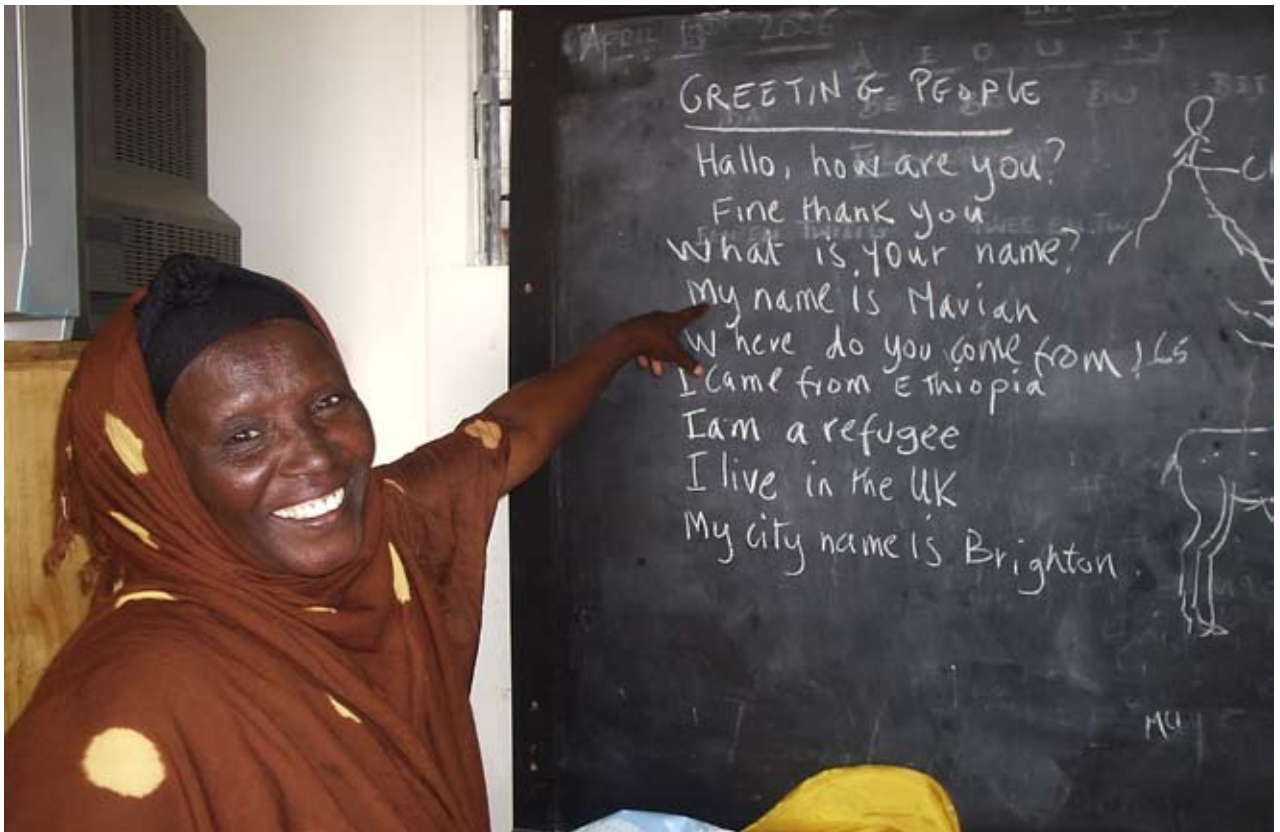 APRIL 19TH 2006
A E O U IJ
GREETING PEOPLE
BE BO BU BIJ
Hallo, how are you?
Fine thank you
What is your name?
My name is Marian
Where do you come from?
I came from Ethiopia
I am a refugee
I live in the UK
My city name is Brighton
MU